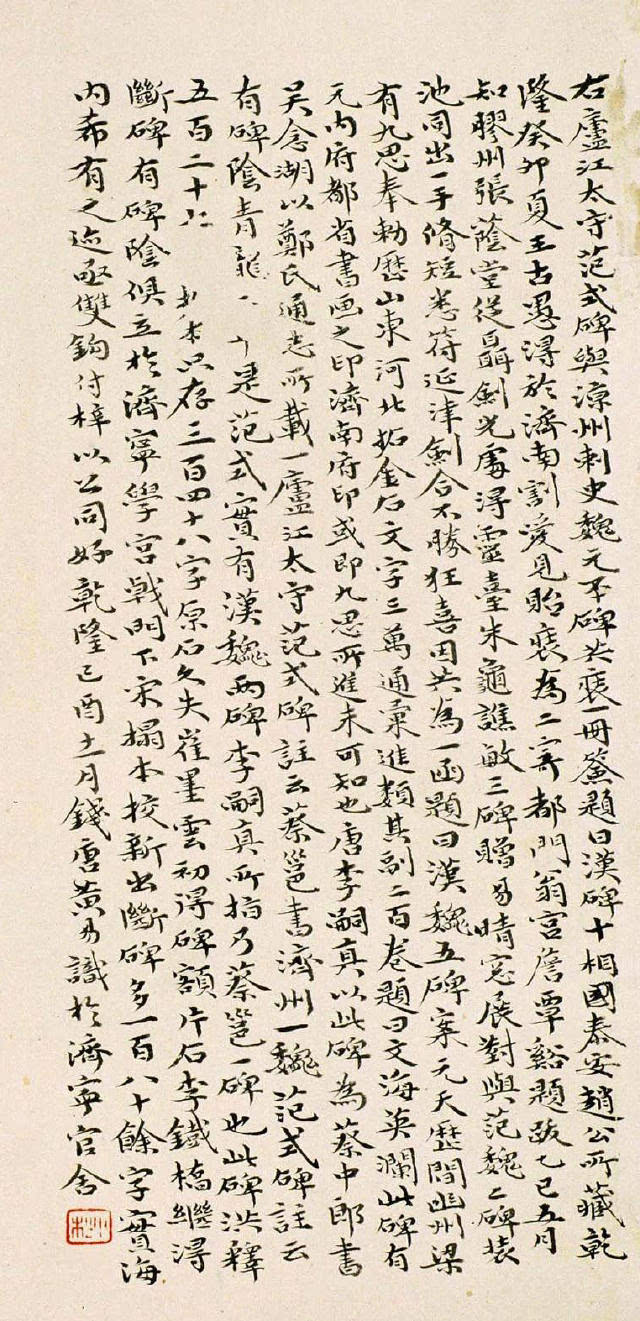 右廬江太守范式碑與涼州刺史魏元丕碑共裝一冊簽題曰漢碑十相國泰安趙公所藏乾
隆癸卯夏王古愚得於濟南割愛見貽裝為二寄都門翁宮詹覃谿題跋乙巳五月
知膠州張蔭堂從聶劍光處得靈臺朱龜譙敏三碑贈易晴窓展對與范魏二碑裝
池同出一手脩短悉符延津劍合不勝狂喜因共為一函題曰漢魏五碑案元天歷間幽州梁
有九思奉勑歷山東河北拓金石文字三萬通彙進類其副二百卷題曰文海英瀾此碑有
元內府都省書画之印濟南府印或即九思所進未可知也唐李嗣真以此碑為蔡中郎書
吴念湖以鄭氏通志所載一廬江太守范式碑註云蔡邕書濟州一魏范式碑註云
有碑陰青龍 是范式實有漢魏兩碑李嗣真所指乃蔡邕一碑也此碑洪釋
五百二十 本只存三百四十八字原石久失崔墨雲初得碑額片石李鐵橋繼得
斷碑有碑陰俱立於濟寧學宮戟門下宋搨本校新出斷碑多一百八十餘字實海
內希有之迹亟雙鈎付梓以公同好乾隆己酉十一月錢唐黃易識於濟寧官舍